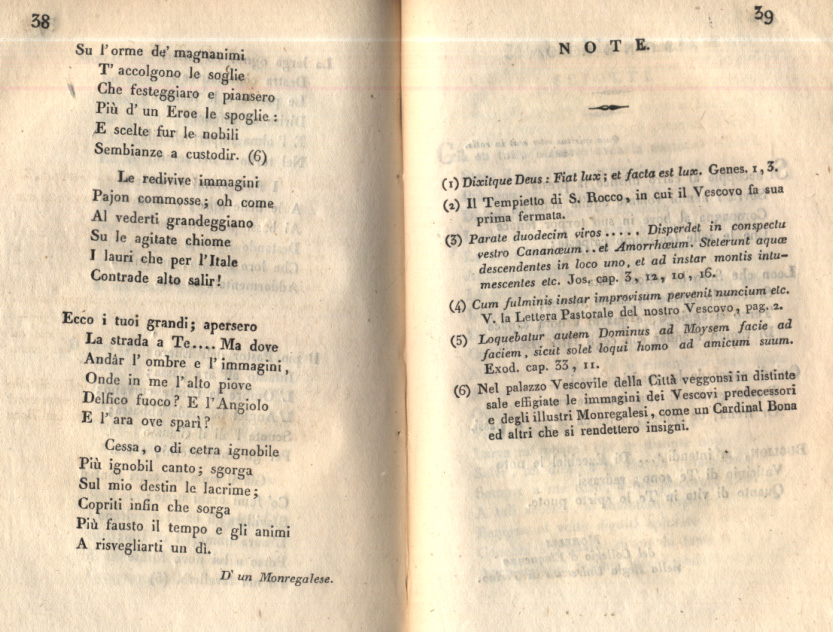 38
Su l'orme de' magnanimi
T' accolgono le soglie
Che festeggiaro e piansero
Più d' un Eroe le spoglie :
E scelte fur le nobili
Sembianze a custodir. (6)
Le redivive immagini
Pajon commosse; oh come
Al vederti grandeggiano
Su le agitate chiome
I lauri che per l'Itale
Contrade alto salir!
Ecco i tuoi grandi; apersero
La strada a Te.... Ma dove
Andàr l' ombre e l' immagini,
Onde in me l'alto piove
Delfico fuoco? E l'Angiolo
E l' ara ove sparì?
Cessa, o di cetra ignobile
Più ignobil canto; sgorga
Sul mio destin le lacrime;
Copriti infin che sorga
Più fausto il tempo e gli animi
A risvegliarti un dì.
D' un Monregalese.
39
NOTE.
(1) Dixitque Deus : Fiat lux ; et facta est lux. Genes. 1, 3.
(2) Il Tempietto di S. Rocco, in cui il Vescovo fa sua
prima fermata.
(3) Parate duodecim viros ..... Disperdet in conspectu
vestro Cananœum .. et Amorrhœum. Steterunt aquæ
descendentes in loco uno, et ad instar montis intu-
mescentes etc. Jos. cap. 3, 12, 10, 16.
(4) Cum fulminis instar improvisum pervenit nuncium etc.
V. la Lettera Pastorale del nostro Vescovo, pag. 2.
(5) Loquebatur autem Dominus ad Moysem facie ad
faciem, sicut solet loqui homo ad amicum suum.
Exod. cap. 33, 11.
(6) Nel palazzo Vescovile della Città veggonsi in distinte
sale effigiate le immagini dei Vescovi predecessori
e degli illustri Monregalesi, come un Cardinal Bona
ed altri che si rendettero insigni.